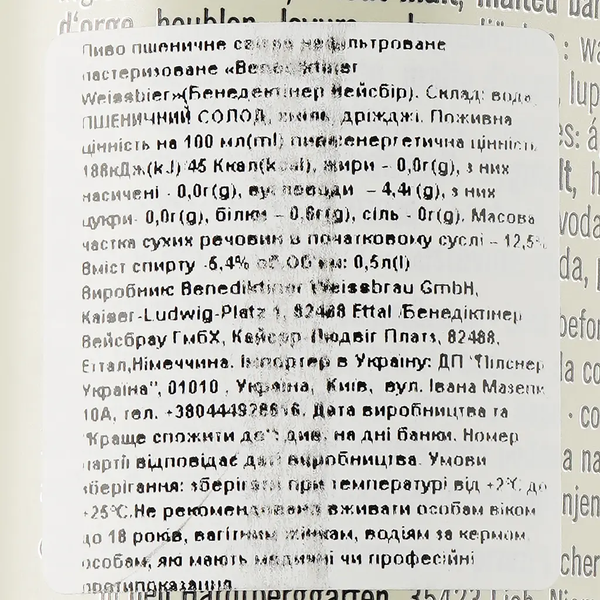 Пиво пшеничне світле нефільтроване
пастеризоване «Benediktiner
Weissbier»(Бенедектінер Вейсбір). Склад: вода,
ПШЕНИЧНИЙ СОЛОД, хміль, дріжджі. Поживна
цінність на 100 мл(ml) пива:енергетична цінність
188кДж(kJ)/45 Ккал(kcal), жири - 0,0г(g), з них
насичені - 0,0г(g), вуглеводи - 4,4г(g), з них
цукри- 0,0г(g), білки - 0,6г(g), сіль - 0г(g). Масова
частка сухих речовин в початковому суслі - 12,5%
Вміст спирту -5,4% об.Об'єм: 0,5л(l)
Виробник: Benediktiner Weissbrau GmbH,
Kaiser-Ludwig-Platz 1, 82488 Ettal /Бенедіктінер
Вейсбрау ГмбХ, Кайсер-Людвіг Платз, 82488,
Еттал,Німеччина. Імпортер в Україну: ДП "Пілснер
Україна", 01010 , Україна, Київ, вул. Івана Мазепи
10А, тел. +380444928616. Дата виробництва та
"Краще спожити до": див. на дні банки. Номер
партії відповідає даті виробництва. Умови
зберігання: зберігати при температурі від +2°С до
+25°С.Не рекомендовано вживати особам віком
до 18 років, вагітним жінкам, водіям за кермом,
особам, які мають медичні чи професійні
протипоказання.